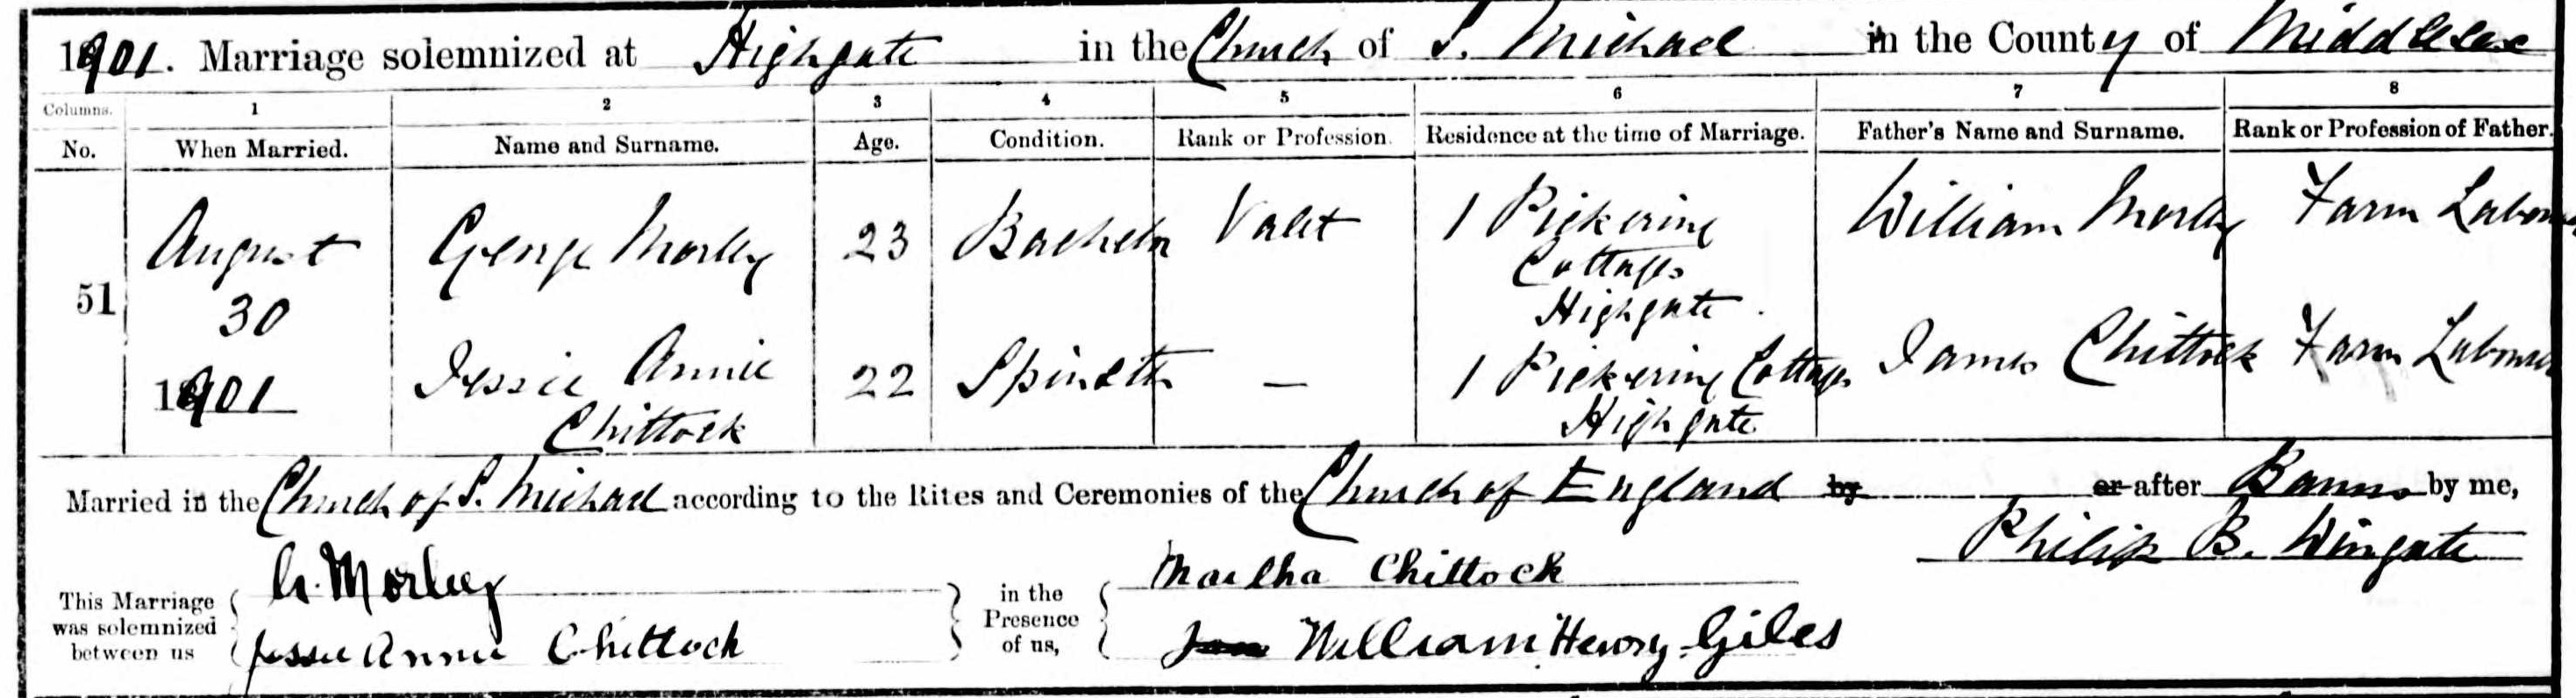 1901. Marriage solemnized at Highgate in the Church of S. Michael in the County of Middlesex
Columns. 1 2 3 4 5 6 7 8
No. When Married. Name and Surname. Age. Condition. Rank or Profession. Residence at the time of Marriage. Father's Name and Surname. Rank or Profession of Father.
51
August
30
1901
George Morley 23 Bachelor Valet 1 Pickering
Cottages
Highgate.
William Morley Farm Labourer
Jessie Annie
Chittock
22 Spinster — 1 Pickering Cottages
Highgate
James Chittock Farm Labourer
Married in the Church of S. Michael according to the Rites and Ceremonies of the Church of England by or after Banns by me,
Philip B. Wingate
This Marriage
was solemnized
between us
G. Morley
Jessie Annie Chittock
in the
Presence
of us,
Martha Chittock
William Henry Giles